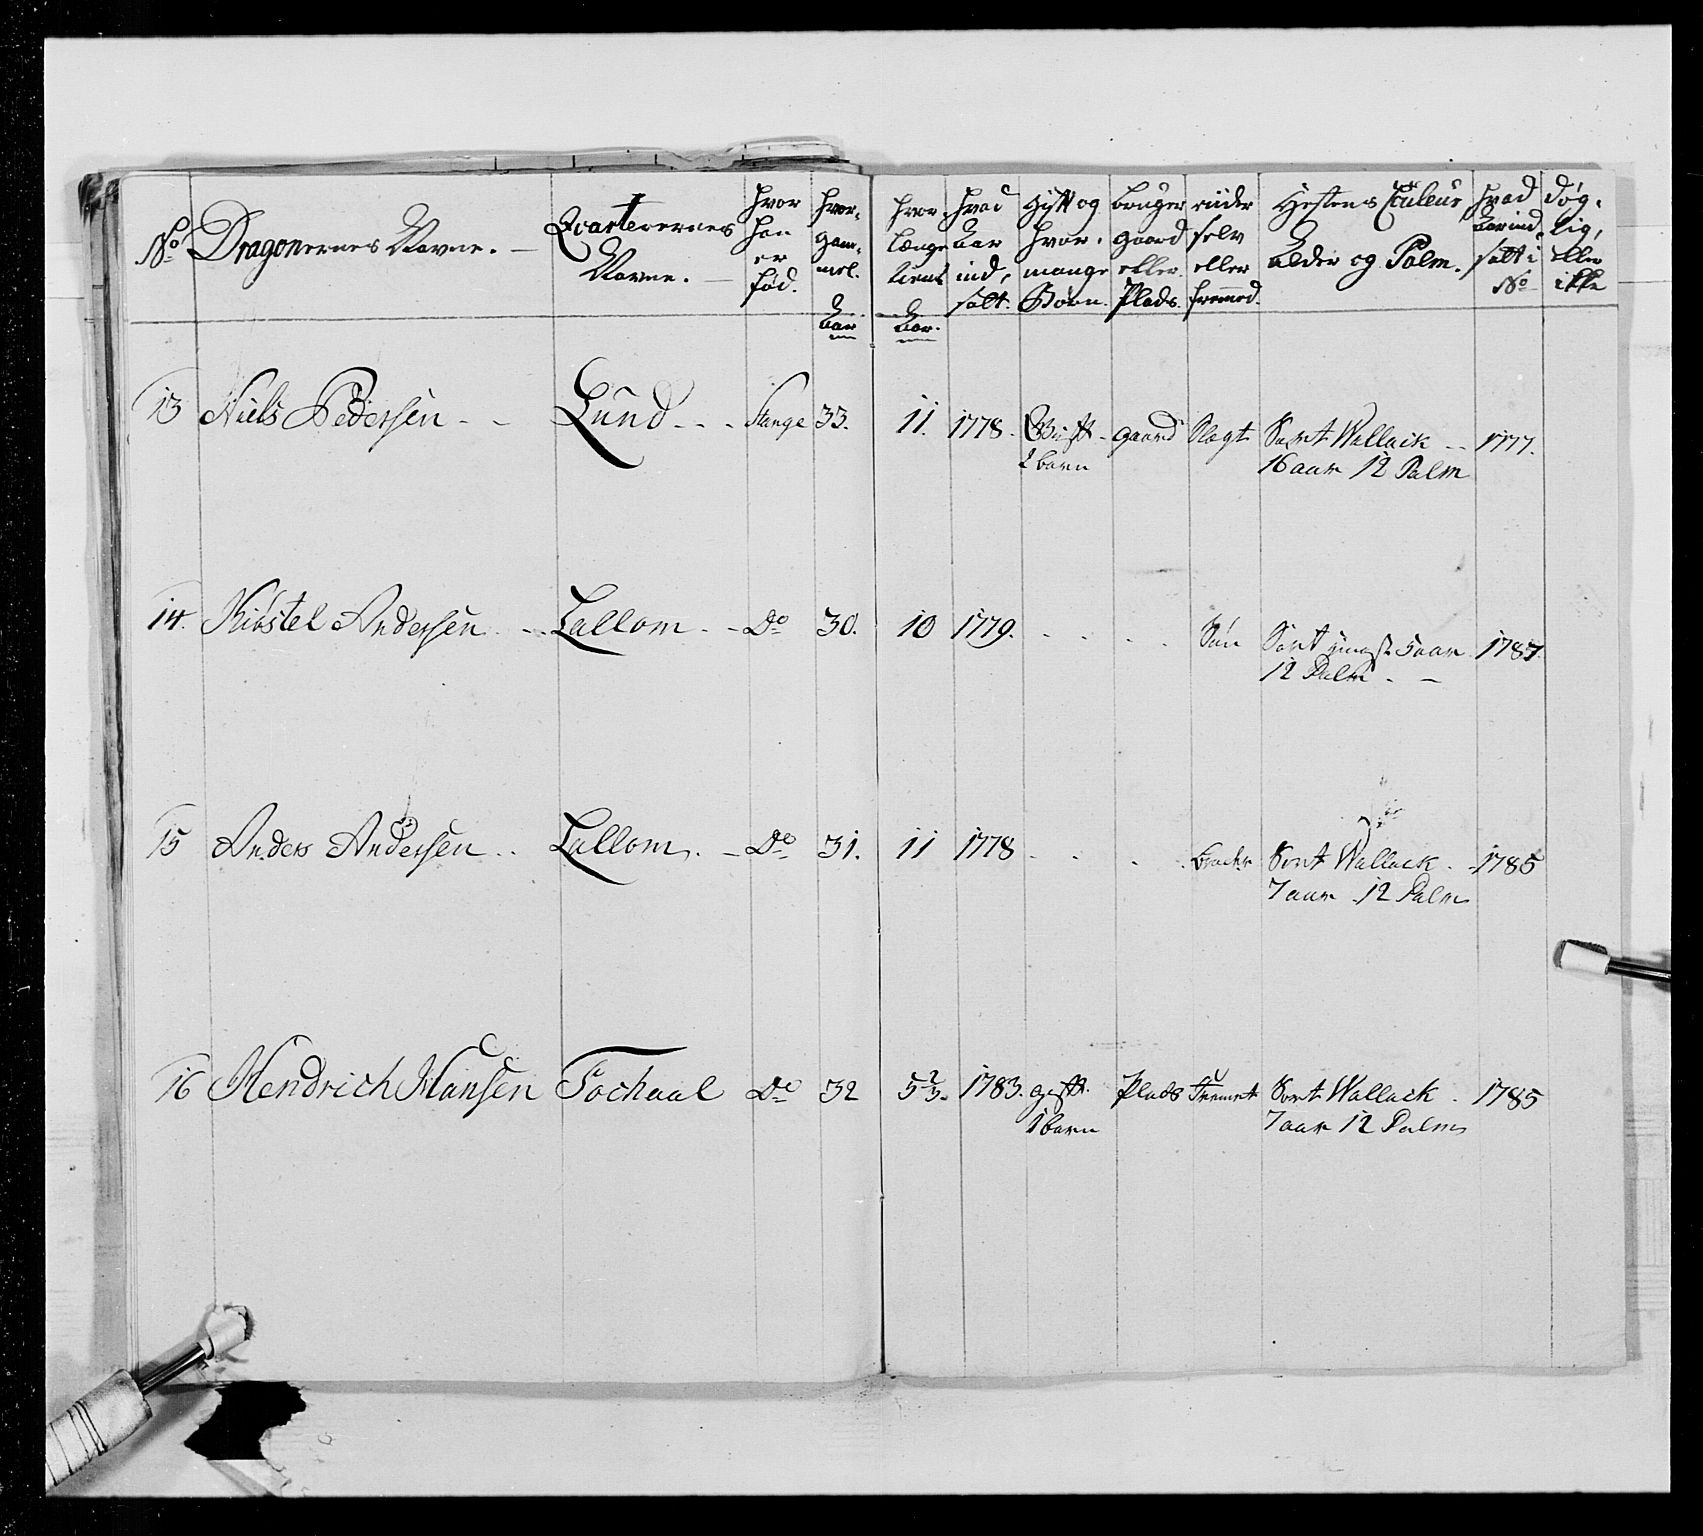 No Dragonernes Navne. Qvarterernes Navne. hvor han er fød. hvor gam- mel. Aar hvor længe tient Aar. hvad Aar ind- satt. Gift og hvor mange Børn. bruger gaard eller Plads. riider selv eller fremmed. Hestens Couleur Alder og Palm. hvad Aar ind satt i No døg- tig, eller ikke
13 Niels Pedersen - - Lund - - - Stange 33. 11. 1778. Gift - gaard Slegt Sort Wallack - - 1777.
2 barn 16 aar 12 Palm
14. Kiöstel Andersen - - Lallom - - Do 30. 10 1779. - - - - Sort 5 aar 1787.
12 Palm - -
15 Anders Andersen - - Lallom - - Do 31. 11 1778 - - - - Sort Wallack - 1785
7 aar 12 Palm
16 Hendrich Hansen Tochaal Do 32 5 2/3. 1783. gift Plads Fremet Sort Wallack - 1785
1 barn 7 aar 12 Palm